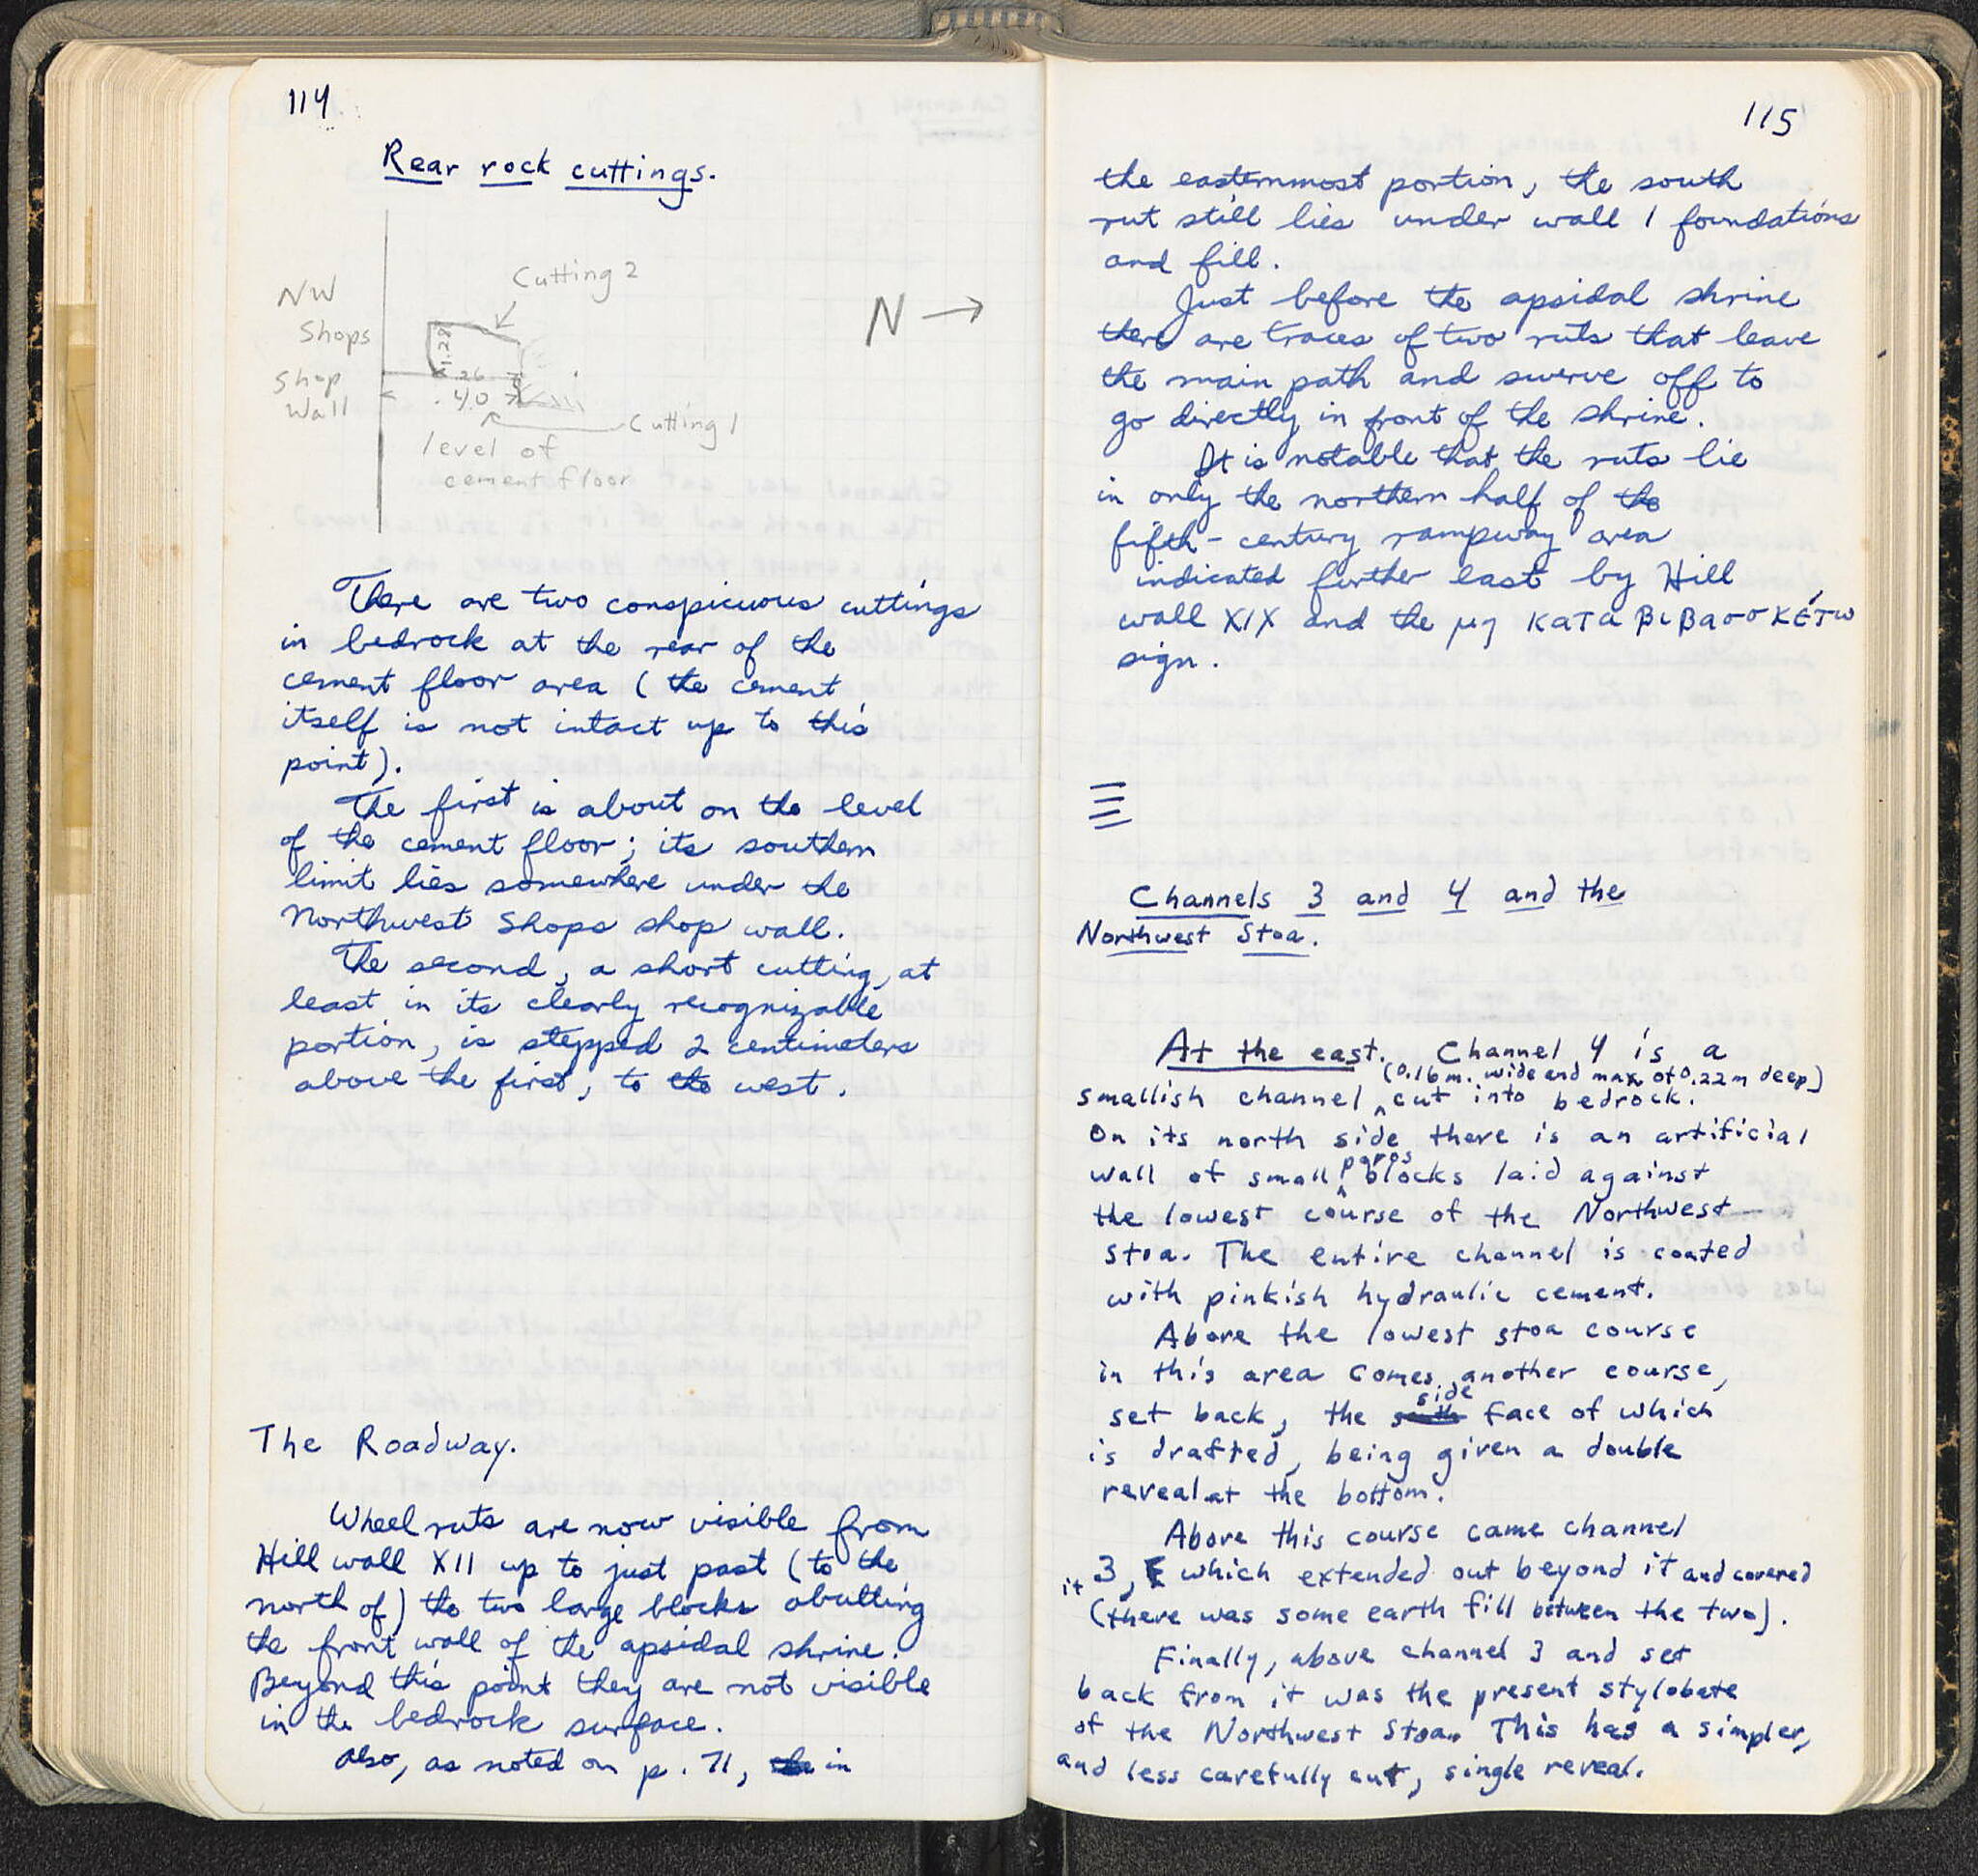 114
Rear rock cuttings.
NW
Shops
Shop
Wall
Cutting 2
N →
1.29
.26
.40
Cutting 1
level of
cement floor
There are two conspicuous cuttings
in bedrock at the rear of the
cement floor area (the cement
itself is not intact up to this
point).
The first is about on the level
of the cement floor; its southern
limit lies somewhere under the
Northwest Shops shop wall.
The second, a short cutting, at
least in its clearly recognizable
portion, is stepped 2 centimeters
above the first, to the west.
The Roadway.
Wheel ruts are now visible from
Hill wall XII up to just past (to the
north of) the two large blocks abutting
the front wall of the apsidal shrine.
Beyond this point they are not visible
in the bedrock surface.
Also, as noted on p. 71, in
115
the easternmost portion, the south
rut still lies under wall 1 foundations
and fill.
Just before the apsidal shrine
there are traces of two ruts that leave
the main path and swerve off to
go directly in front of the shrine.
It is notable that the ruts lie
in only the northern half of the
fifth-century rampway area
indicated further east by Hill
wall XIX and the μη καταβιβασσκέτω
sign.
Channels 3 and 4 and the
Northwest Stoa.
At the east. Channel 4 is a
(0.16m. wide and max of 0.22m deep)
smallish channel ^ cut into bedrock.
On its north side there is an artificial
wall of small poros blocks laid against
the lowest course of the Northwest
Stoa. The entire channel is coated
with pinkish hydraulic cement.
Above the lowest stoa course
in this area comes another course,
set back, the south side face of which
is drafted, being given a double
reveal at the bottom.
Above this course came channel
3, which extended out beyond it and covered
it (there was some earth fill between the two).
Finally, above channel 3 and set
back from it was the present stylobate
of the Northwest Stoa. This has a simpler,
and less carefully cut, single reveal.